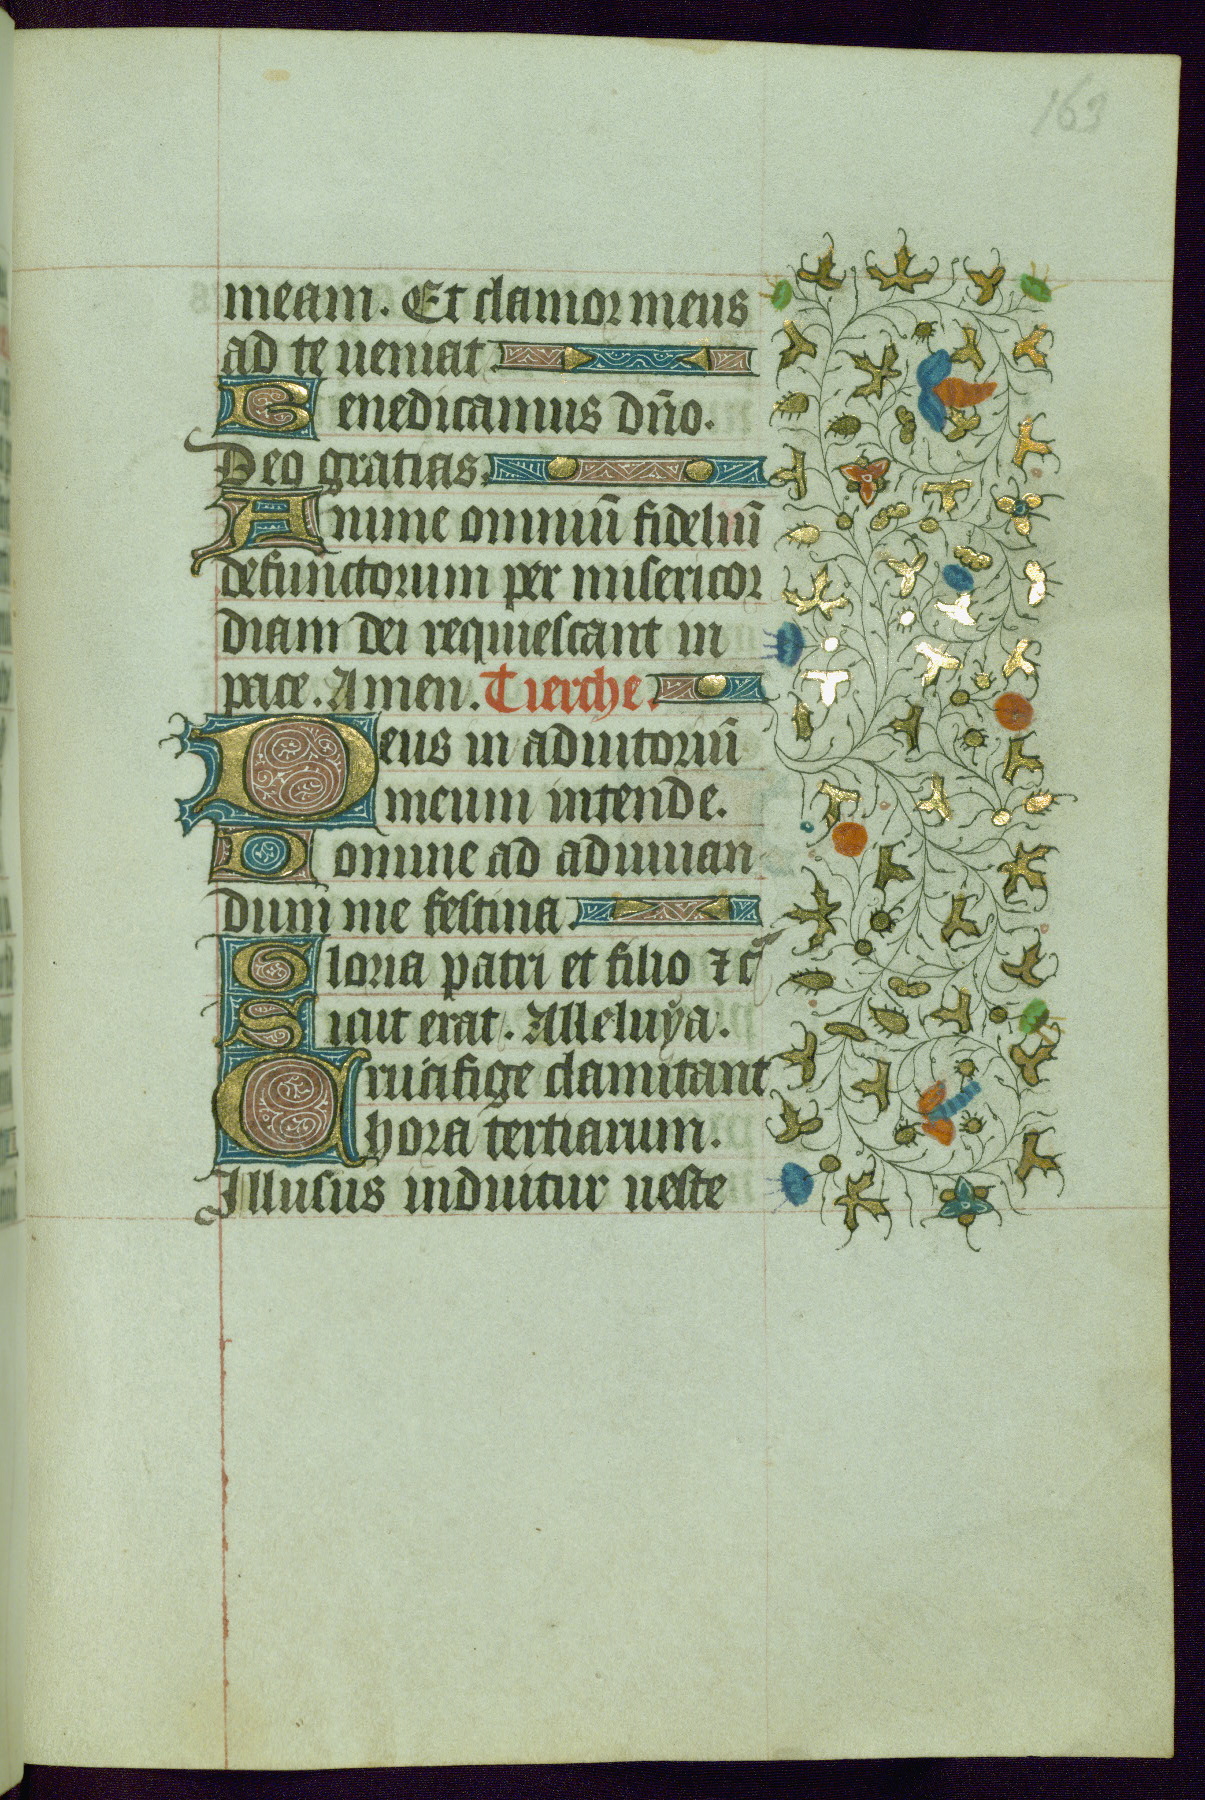 163
meam. Et clamor meus
ad te ueniat
Benedicamus dn̄o.
Deo gratias.
Anime omniū fideliū
defunctorum per misericor
diam dei requiescant in
pace. Amen. Tierche.
Deus in adiutoriū
meum intende.
Domine ad adiuuan
dum me festina
Gloria patri et filio ⁊ c̄
Sicut erat. Alleluya.
Crucifige clamitant
hora tertiarum.
Illusus induitur ueste